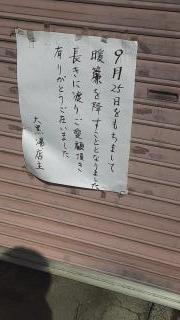 9月25日をもちまして
暖簾を降すこととなりました
長きに渡りご愛顧頂き
有りがとうご在いました
大黒湯店主